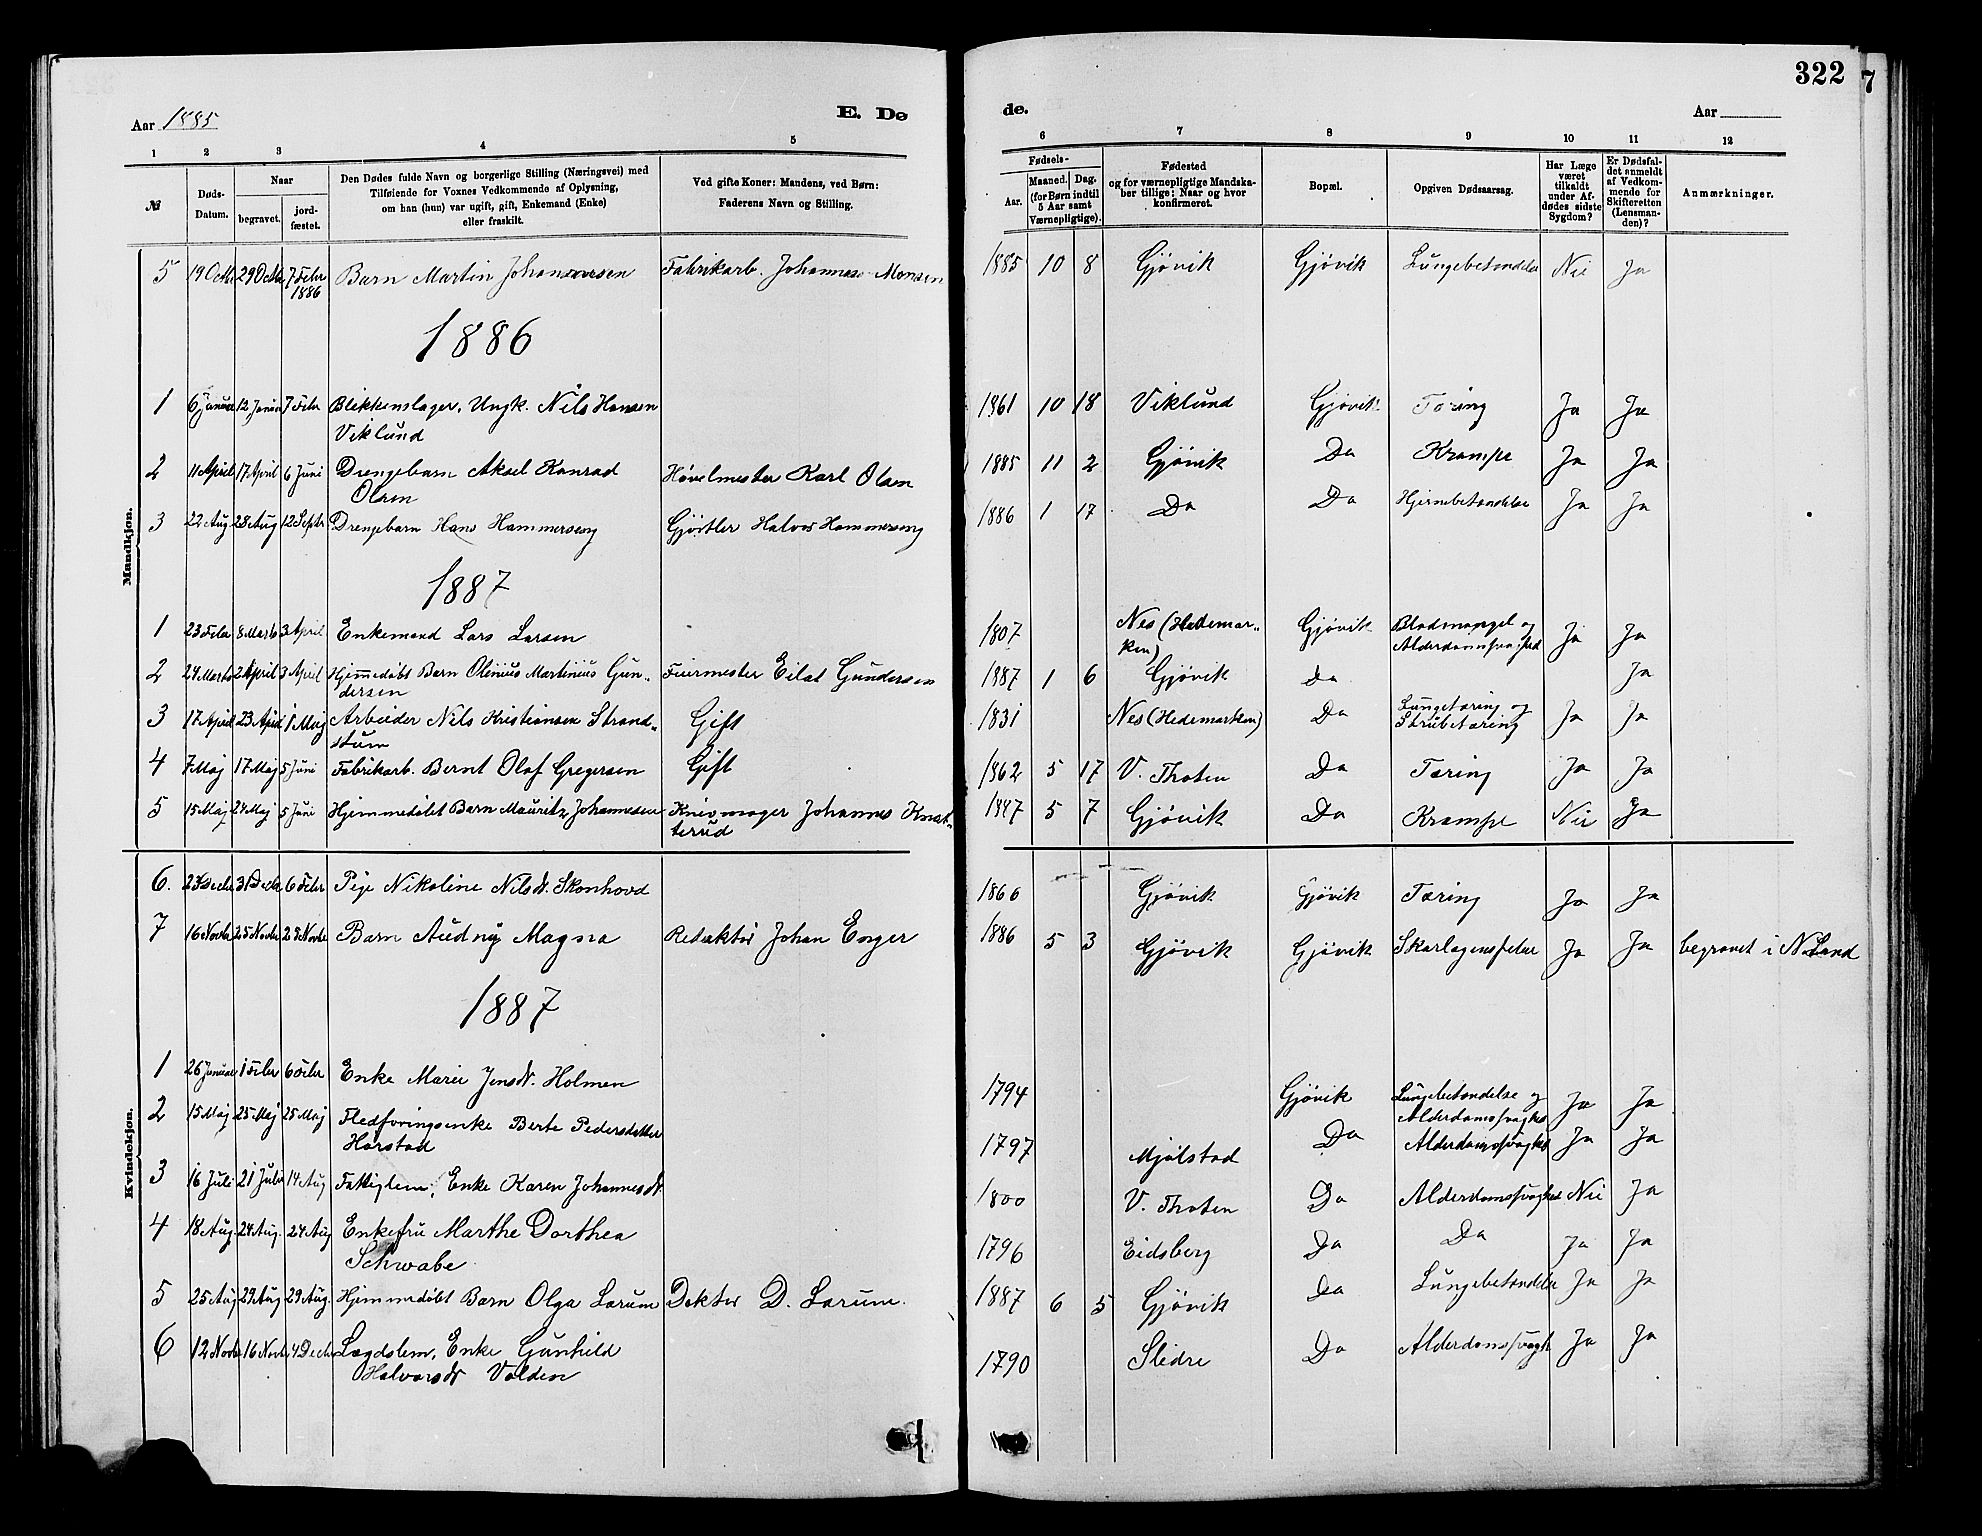 322
7
Aar 1885
E. Dø
de.
Aar
1 2 3 4 5 6 7 8 9 10 11 12
№
Døds-Datum.
Naar
begravet.
jord-fæstet.
Den Dødes fulde Navn og borgerlige Stilling (Næringsvei) med
Tilføiende for Voxnes Vedkommende af Oplysning,
om han (hun) var ugift, gift, Enkemand (Enke)
eller fraskilt.
Ved gifte Koner: Mandens, ved Børn:
Faderens Navn og Stilling.
Fødsels-
Aar.
Maaned. Dag.
(for Børn indtil
5 Aar samt
Værnepligtige).
Fødested
og for værnepligtige Mandska-
ber tillige: Naar og hvor
konfirmeret.
Bopæl.
Opgiven Dødsaarsag.
Har Læge
været
tilkaldt
under Af-
dødes sidste
Sygdom?
Er Dødsfal-
det anmeldt
af Vedkom-
mende for
Skifteretten
(Lensman-
den)?
Anmærkninger.
Mandkjøn.
5 19 Octbr 29 Octbr 7 Febr 1886 Barn Martin Fabrikarb. Johannes Monsen 1885 10 8 Gjøvik Gjøvik Lungebetændelse Nei Ja
1886
1 6 Januar 12 Januar 7 Febr Blikkenslager, Ungk. Nils Hansen 1861 10 18 Viklund Gjøvik Tæring Ja Ja
Viklund
2 11 April 17 April 6 Juni Drengebarn Aksel Konrad Høvelmester Karl Olsen 1885 11 2 Gjøvik Do Krampe Ja Ja
Olsen
3 22 Aug 28 Aug 12 Septr Drengebarn Hans Hammerseng Gjørtler Halvor Hammerseng 1886 1 17 Do Do Hjernebetændelse Ja Ja
1887
1 23 Febr 8 Marts 3 April Enkemand Lars Larsen 1807 Nes (Hedemar- Gjøvik Blodmangel og Ja Ja
ken) Alderdomssvaghed
2 24 Marts 2 April 3 April Hjemmedøbt Barn Olenius Martinius Gun- Feiermester Eilat Gundersen 1887 1 6 Gjøvik Do Ja
dersen
3 17 April 23 April 1 Maj Arbeider Nils Kristiansen Strand- Gift 1831 Nes (Hedemarken) Do Lungetæring og Ja Ja
stuen Strubetæring
4 7 Maj 17 Maj 5 Juni Fabrikarb. Bernt Olaf Gregersen Gift 1862 5 17 V. Thoten Do Tæring Ja Ja
5 15 Maj 24 Maj 5 Juni Hjemmedøbt Barn Mauritz Johannesen Knivmager Johannes Knat- 1887 5 7 Gjøvik Do Krampe Nei Ja
terud
Kvindekjøn.
6. 31 Decbr 6 Febr Pige Nikoline Nilsdr. Skonhovd 1866 Gjøvik Gjøvik Tæring Ja Ja
7 16 Novbr 25 Novbr 28 Novbr Barn Audny Magna Redaktør Johan Enger 1886 5 3 Gjøvik Gjøvik Skarlagensfeber Ja Ja begravet i N. Land
1887
1 26 Januar 1 Febr 6 Febr Enke Marie Jensdr. Holmen 1794 Gjøvik Lungebetændelse og Ja Ja
Alderdomssvaghed
2 15 Maj 25 Maj 25 Maj Fledføringsenke Berte Pedersdatter 1797 Mjølstad Do Alderdomssvaghed Ja Ja
Harstad
3 16 Juli 21 Juli 14 Aug Fattiglem, Enke Karen Johannesdr. 1800 V. Thoten Do Alderdomssvaghed Nei Ja
4 18 Aug. 24 Aug. 24 Aug Enkefru Marthe Dorthea 1796 Eidsberg Do Do Ja Ja
Schwabe
5 25 Aug 29 Aug 29 Aug. Hjemmedøbt Barn Olga Larum Doktor D. Larum. 1887 6 5 Gjøvik Do Lungebetændelse Ja Ja
6 12 Novbr 16 Novbr 4 Decbr Lægdslem, Enke Gunhild 1790 Slidre Do Alderdomssvagh Ja Ja
Halvorsdr Volden